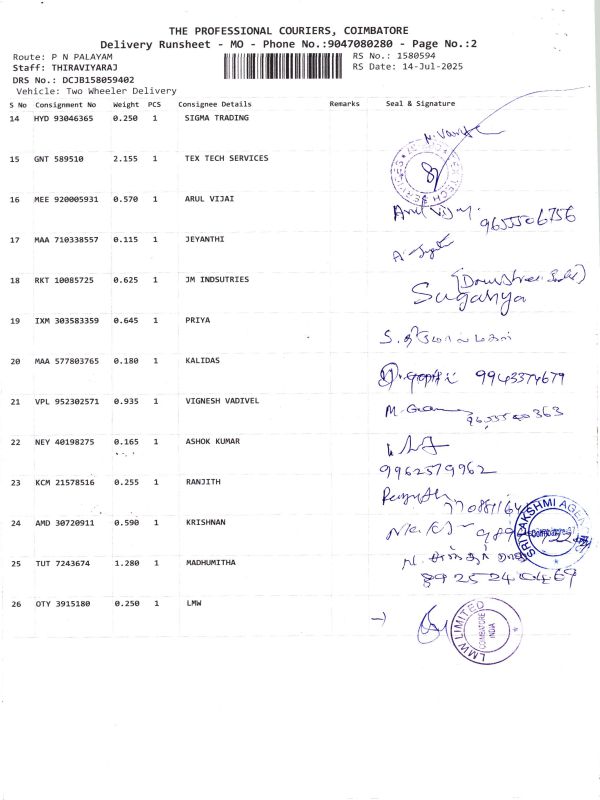 THE PROFESSIONAL COURIERS, COIMBATORE
Delivery Runsheet - MO - Phone No.:9047080280 - Page No.:2
Route: P N PALAYAM
RS No.: 1580594
Staff: THIRAVIYARAJ
RS Date: 14-Jul-2025
DRS No.: DCJB158059402
Vehicle: Two Wheeler Delivery
S No Consignment No Weight PCS Consignee Details Remarks Seal & Signature
14 HYD 93046365 0.250 1 SIGMA TRADING
15 GNT 589510 2.155 1 TEX TECH SERVICES
TEX TECH SERVICES
16 MEE 920005931 0.570 1 ARUL VIJAI Arul Vijay.
9655506756
17 MAA 710338557 0.115 1 JEYANTHI
18 RKT 10085725 0.625 1 JM INDSUTRIES
Suganya
19 IXM 303583359 0.645 1 PRIYA
20 MAA 577803765 0.180 1 KALIDAS 9943374679
21 VPL 952302571 0.935 1 VIGNESH VADIVEL
22 NEY 40198275 0.165 1 ASHOK KUMAR
9962579962
23 KCM 21578516 0.255 1 RANJITH
24 AMD 30720911 0.590 1 KRISHNAN
SRI LAKSHMI
25 TUT 7243674 1.280 1 MADHUMITHA
8925240469
26 OTY 3915180 0.250 1 LMW
LMW LIMITED
COIMBATORE
INDIA